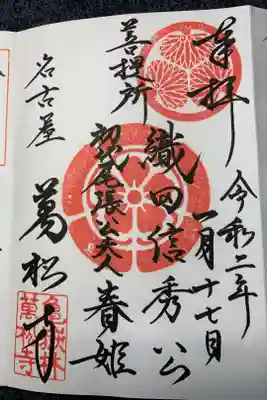 奉拝
令和二年
一月十七日
菩提所
織田信秀公
初代尾張公夫人春姫
名古屋
萬松寺
亀嶽林
萬松寺